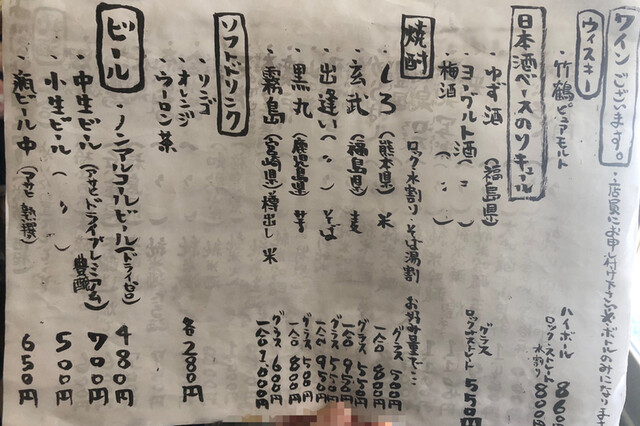 ワインございます。・店員にお申し付け下さい※ボトルのみになります
ウィスキー
・竹鶴ピュアモルト ハイボール 860
ロック・ストレート 水割り 800円
日本酒ベースのリキュール
・ゆず酒(福島県) グラス
・ヨーグルト酒(〃) ロックorストレート 550円
・梅酒(〃)
焼酎 ロック・水割り・そば湯割 お好み量で…
・しろ(熊本県)米 グラス 500円 一合 800円
・玄武(福島県)麦 グラス 550円 一合 950円
・出逢い(〃)そば グラス 550円 一合 950円
・黒丸(鹿児島県)芋 グラス 500円 一合 800円
・霧島(宮崎県)樽出し 米 グラス 600円 一合 1000円
ソフトドリンク
・リンゴ
・オレンジ 各280円
・ウーロン茶
ビール
・ノンアルコールビール(ドライゼロ) 480円
・中生ビール(アサヒドライプレミアム)豊醸 700円
・小生ビール(〃) 500円
・瓶ビール中(アサヒ 熟撰) 650円